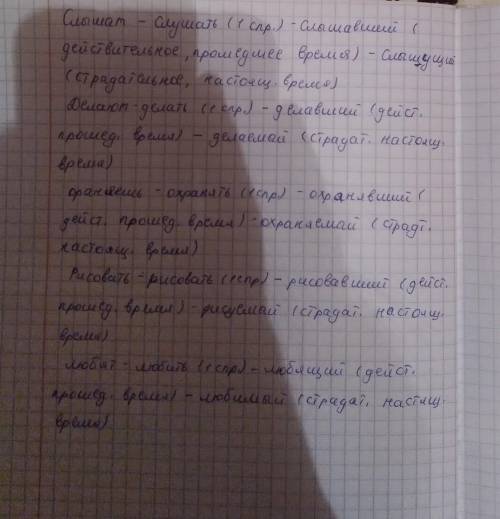 Слышат – слушать (1 спр.) – Слышавший (
действительное, прошедшее время) – Слыщущий
(страдательное, настоящ. время)
Делают – делать (1 спр) – делавший (дейст.
прошед. время) – делаемай (страдат. настоящ.
время)
ораняешь – охранять (1 спр) – охранявший (
дейст. прошед. время) – охраняемай (страдт.
настоящ. время)
Рисовать – рисовать (1 спр) – рисовавший (дейст.
прошед. время) – рисуемай (страдат. настоящ.
время)
любят – любить (1 спр) – любящий (дейст.
прошед. время) – любимый (страдат. настоящ.
время)